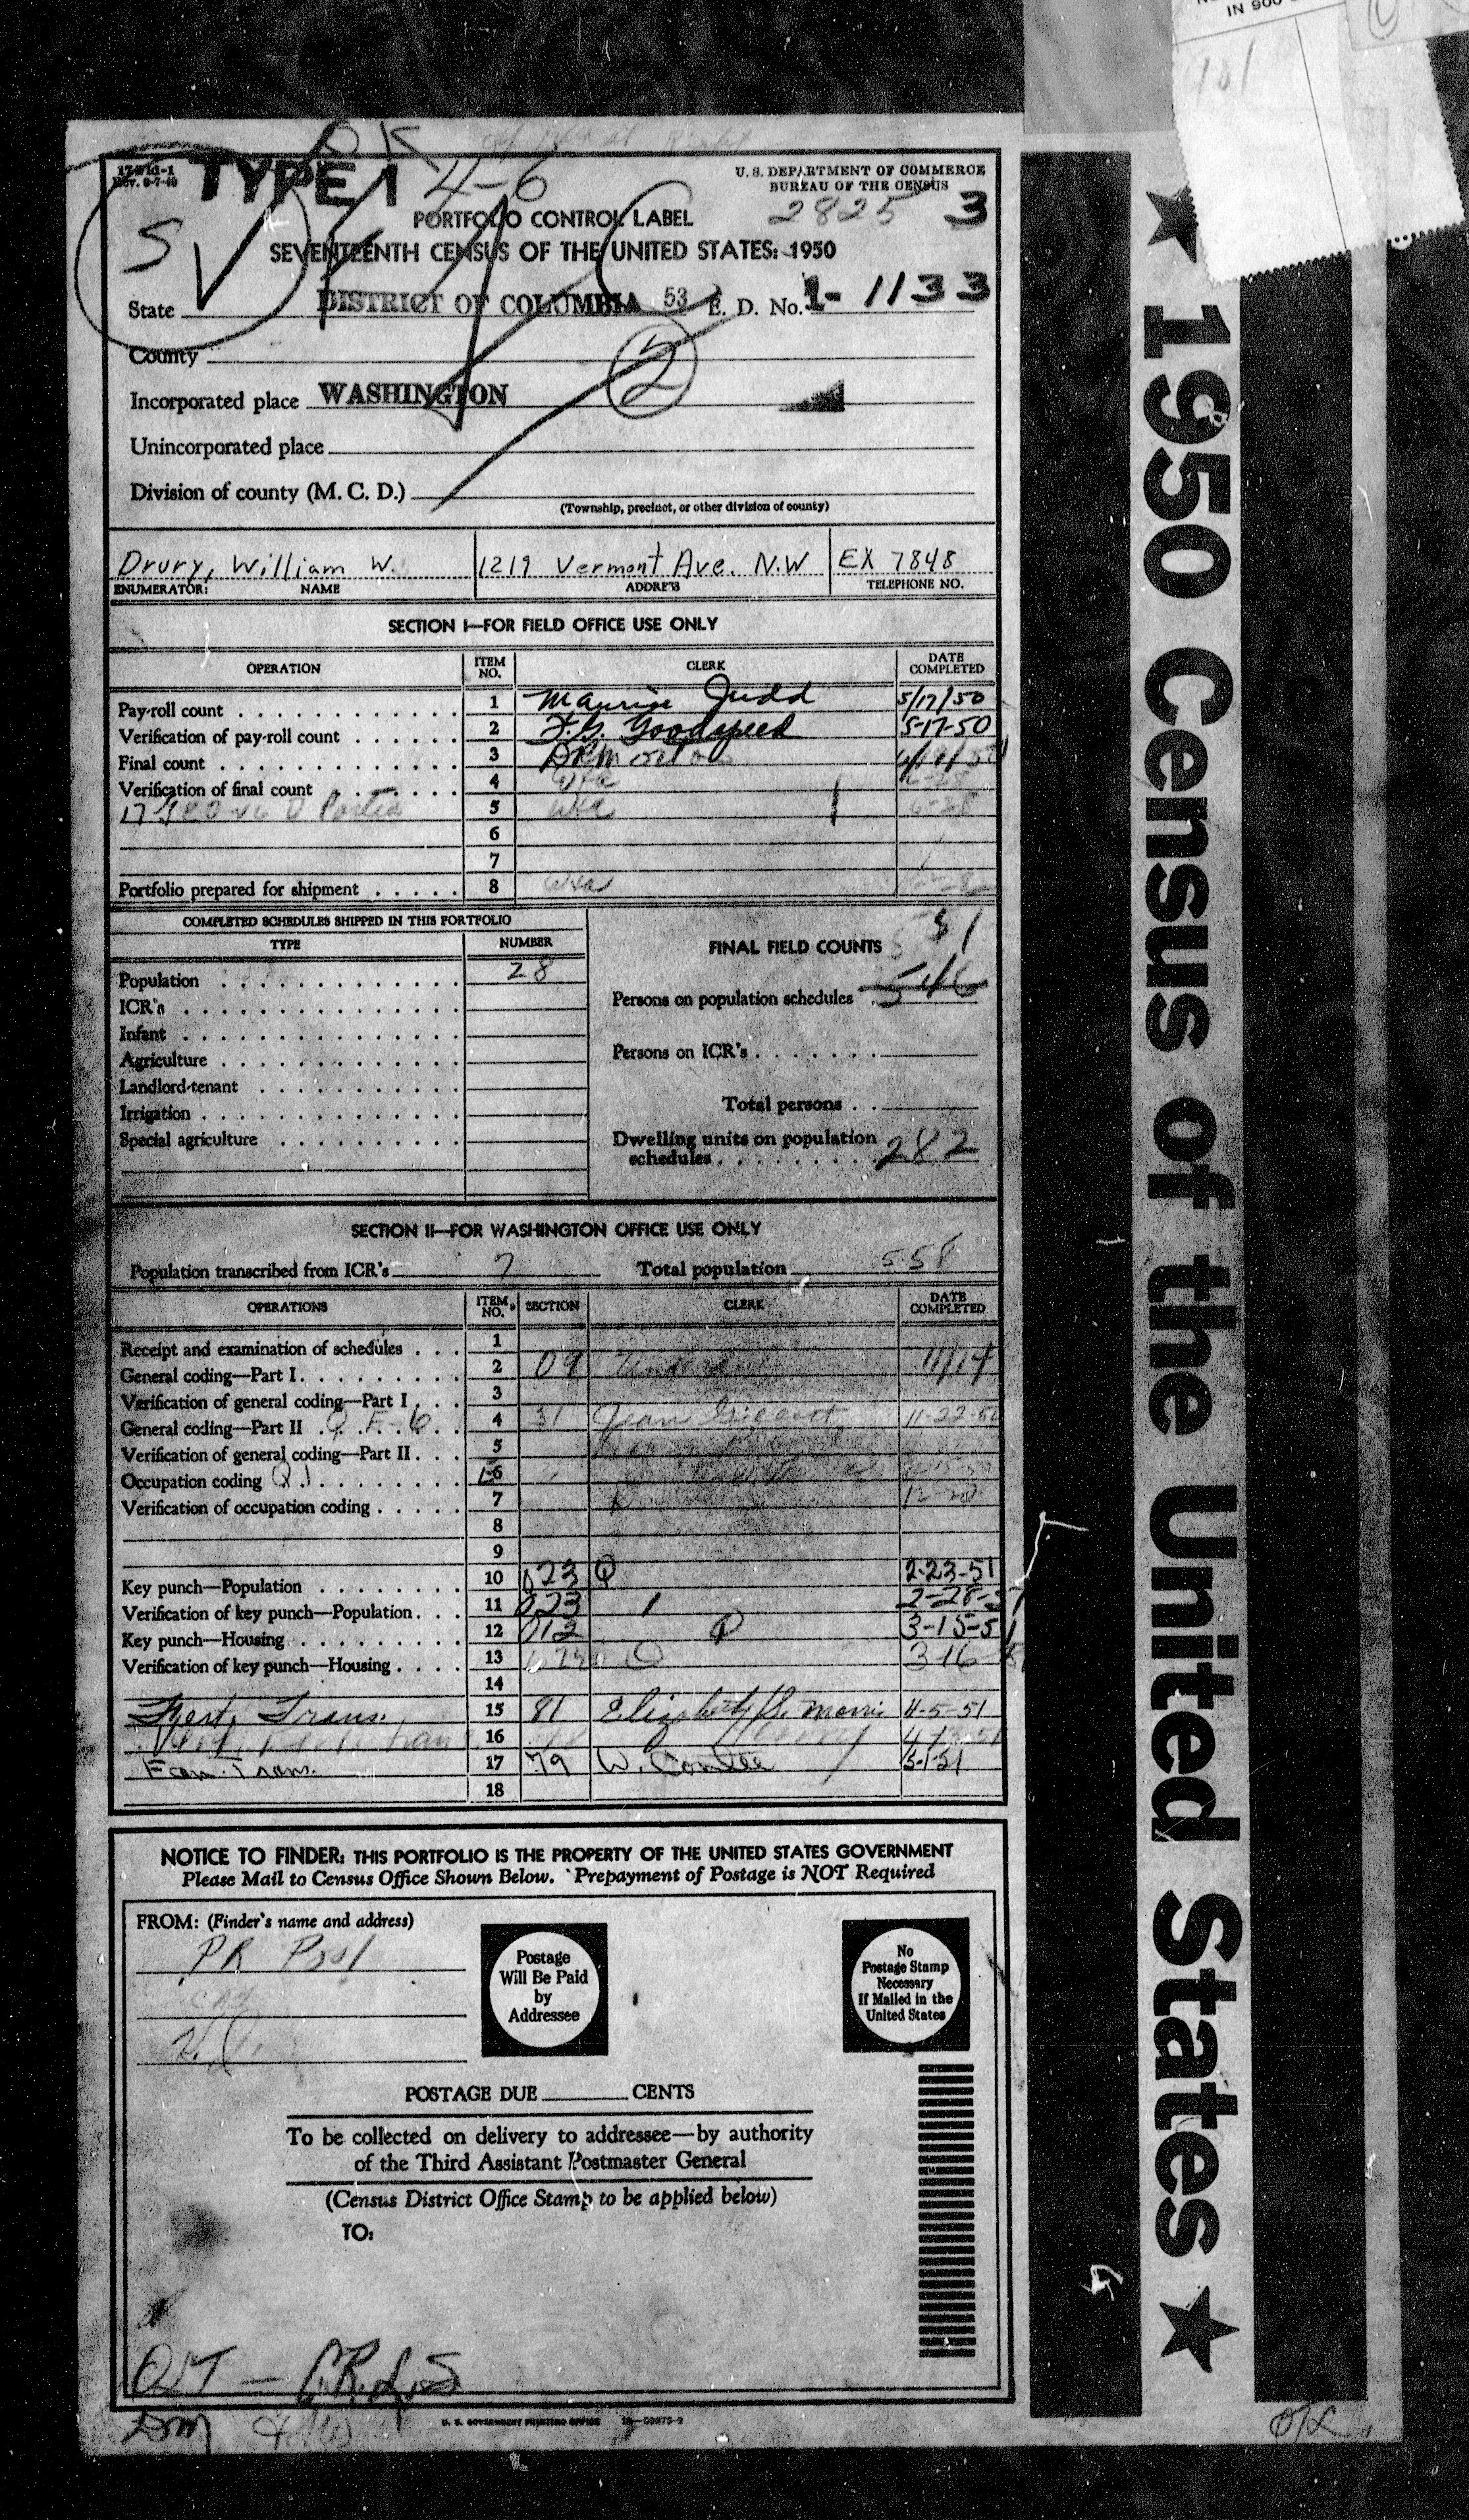 IN 900
101
OK
17-Fld-1
Rev. 9-7-49
TYPE 1
4-6
U. S. DEPARTMENT OF COMMERCE
BUREAU OF THE CENSUS
2825 3
PORTFOLIO CONTROL LABEL
SV
SEVENTEENTH CENSUS OF THE UNITED STATES: 1950
State DISTRICT OF COLUMBIA 53 E. D. No. 1-1133
County
Incorporated place WASHINGTON
Unincorporated place
Division of county (M. C. D.)
(Township, precinct, or other division of county)
Drury, William W. 1219 Vermont Ave. N.W EX 7848
ENUMERATOR: NAME ADDRESS TELEPHONE NO.
SECTION I—FOR FIELD OFFICE USE ONLY
OPERATION ITEM NO. CLERK DATE COMPLETED
Pay-roll count 1 Maurice Judd 5/17/50
Verification of pay-roll count 2 F.G. Goodspeed 5-17-50
Final count 3
Verification of final count 4
5 6-28
6
7
Portfolio prepared for shipment 8
COMPLETED SCHEDULES SHIPPED IN THIS PORTFOLIO
TYPE NUMBER
Population 28
ICR's
Infant
Agriculture
Landlord-tenant
Irrigation
Special agriculture
FINAL FIELD COUNTS
51
Persons on population schedules 546
Persons on ICR's
Total persons
Dwelling units on population
schedules 282
SECTION II—FOR WASHINGTON OFFICE USE ONLY
Population transcribed from ICR's 7 Total population 558
OPERATIONS ITEM NO. SECTION CLERK DATE COMPLETED
Receipt and examination of schedules 1
General coding—Part I 2 09 11/14
Verification of general coding—Part I 3
General coding—Part II 4 31 Jean 11-22-50
Verification of general coding—Part II 5
Occupation coding 6
Verification of occupation coding 7
8
9
Key punch—Population 10 023 2-23-51
Verification of key punch—Population 11 023 2-28-51
Key punch—Housing 12 012 3-15-51
Verification of key punch—Housing 13 3-16
14
Trans. 15 81 Elizabeth 4-5-51
16
Fam. Trans. 17 79 W. 5-1-51
18
NOTICE TO FINDER: THIS PORTFOLIO IS THE PROPERTY OF THE UNITED STATES GOVERNMENT
Please Mail to Census Office Shown Below. Prepayment of Postage is NOT Required
FROM: (Finder's name and address)
Postage
Will Be Paid
by
Addressee
No
Postage Stamp
Necessary
If Mailed in the
United States
POSTAGE DUE CENTS
To be collected on delivery to addressee—by authority
of the Third Assistant Postmaster General
(Census District Office Stamp to be applied below)
TO:
U. S. GOVERNMENT PRINTING OFFICE
★ 1950 Census of the United States ★